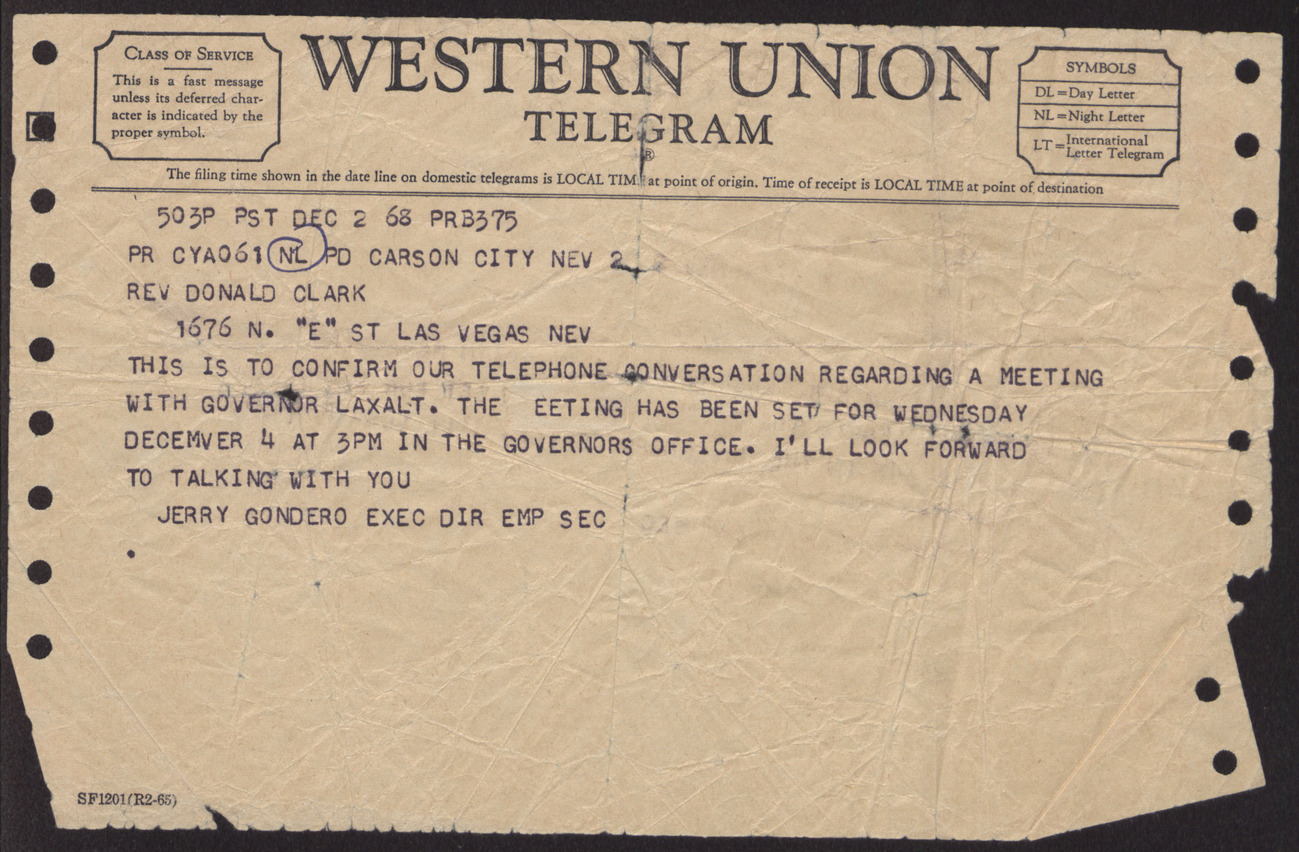 CLASS OF SERVICE
This is a fast message
unless its deferred char-
acter is indicated by the
proper symbol.
WESTERN UNION
TELEGRAM
®
SYMBOLS
DL=Day Letter
NL=Night Letter
LT=International
Letter Telegram
The filing time shown in the date line on domestic telegrams is LOCAL TIM at point of origin. Time of receipt is LOCAL TIME at point of destination
503P PST DEC 2 68 PRB375
PR CYA061 NL PD CARSON CITY NEV 2
REV DONALD CLARK
1676 N. "E" ST LAS VEGAS NEV
THIS IS TO CONFIRM OUR TELEPHONE CONVERSATION REGARDING A MEETING
WITH GOVERNOR LAXALT. THE EETING HAS BEEN SET FOR WEDNESDAY
DECEMVER 4 AT 3PM IN THE GOVERNORS OFFICE. I'LL LOOK FORWARD
TO TALKING WITH YOU
JERRY GONDERO EXEC DIR EMP SEC
.
SF1201(R2-65)